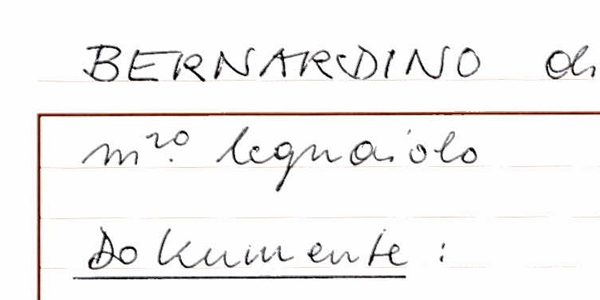 BERNARDINO di
m.ro legnaiolo
Dokumente :